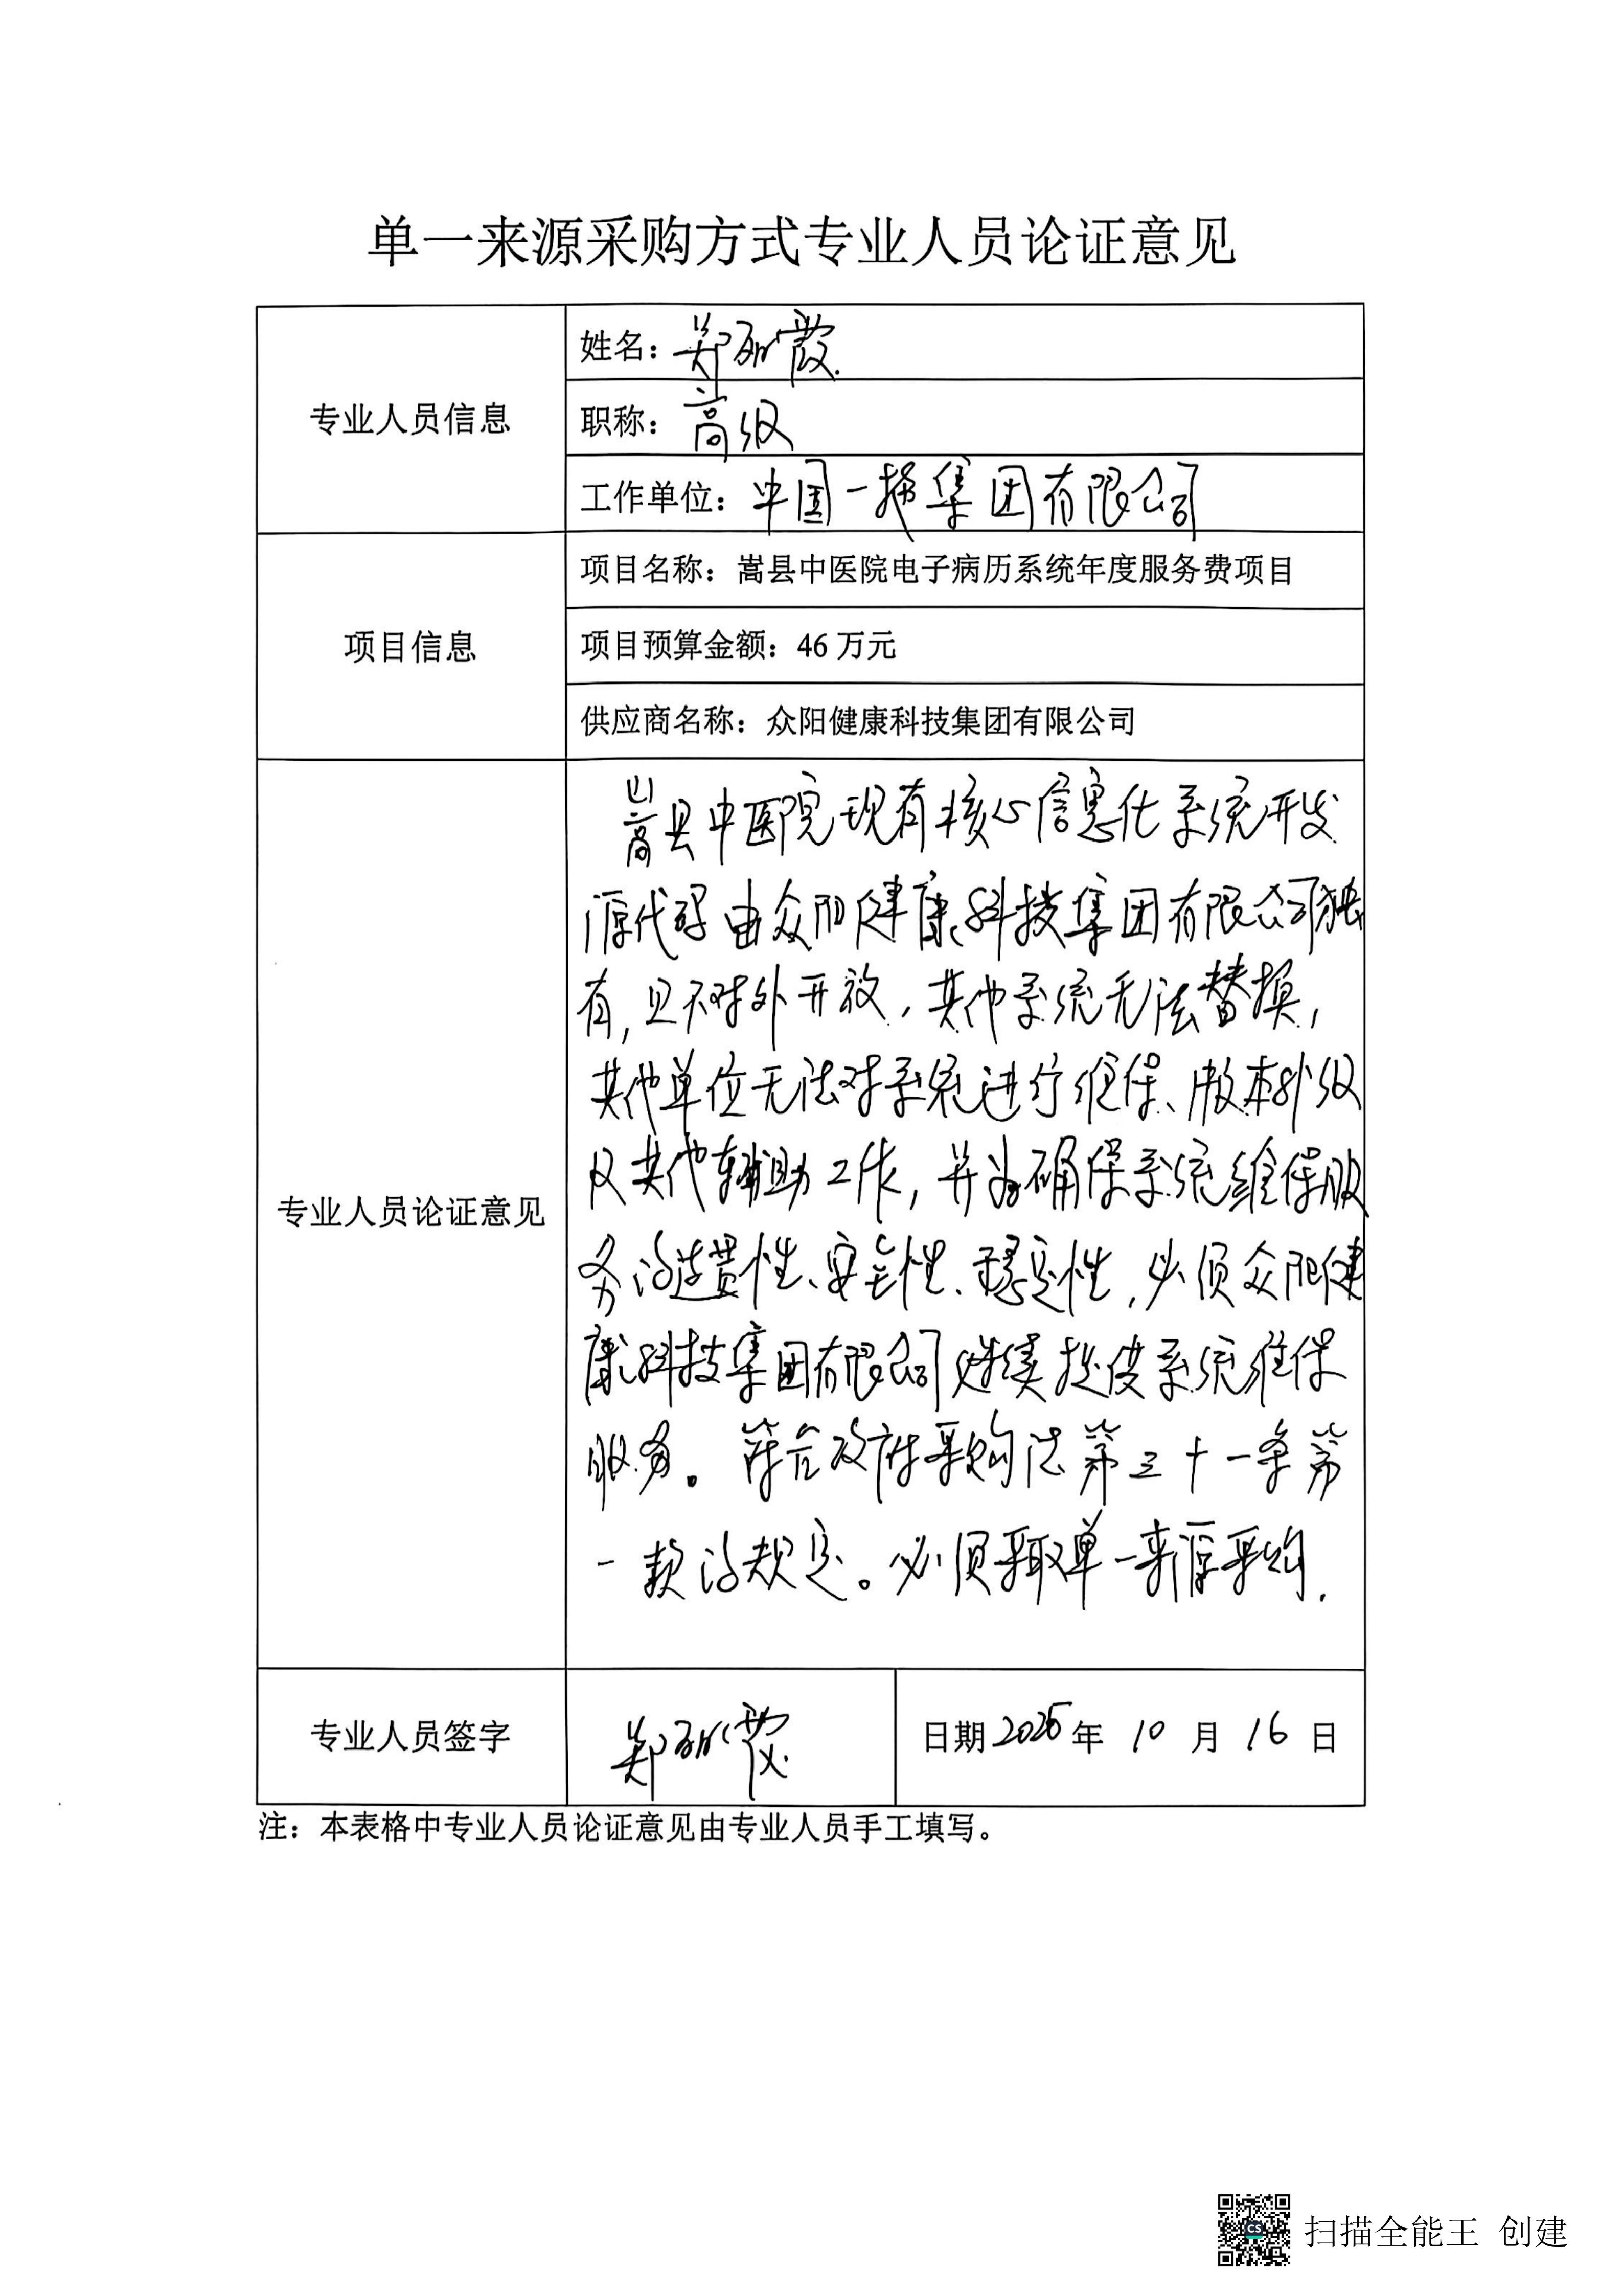 单一来源采购方式专业人员论证意见
专业人员信息
姓名：郑 霞
职称：高级
工作单位：中国一拖集团有限公司
项目信息
项目名称：嵩县中医院电子病历系统年度服务费项目
项目预算金额：46 万元
供应商名称：众阳健康科技集团有限公司
专业人员论证意见
嵩县中医院现有核心信息化系统开发
源代码由众阳健康科技集团有限公司独
有，且不对外开放，其他系统无法替换，
其他单位无法对系统进行维保、版本升级
及其他辅助工作，并为确保系统维保服
务的连贯性、安全性、稳定性，必须众阳健
康科技集团有限公司继续提供系统维保
服务。符合政府采购法第三十一条第
一款的规定。必须采取单一来源采购.
专业人员签字
郑 霞
日期2025年 10 月 16 日
注：本表格中专业人员论证意见由专业人员手工填写。
CS
扫描全能王 创建